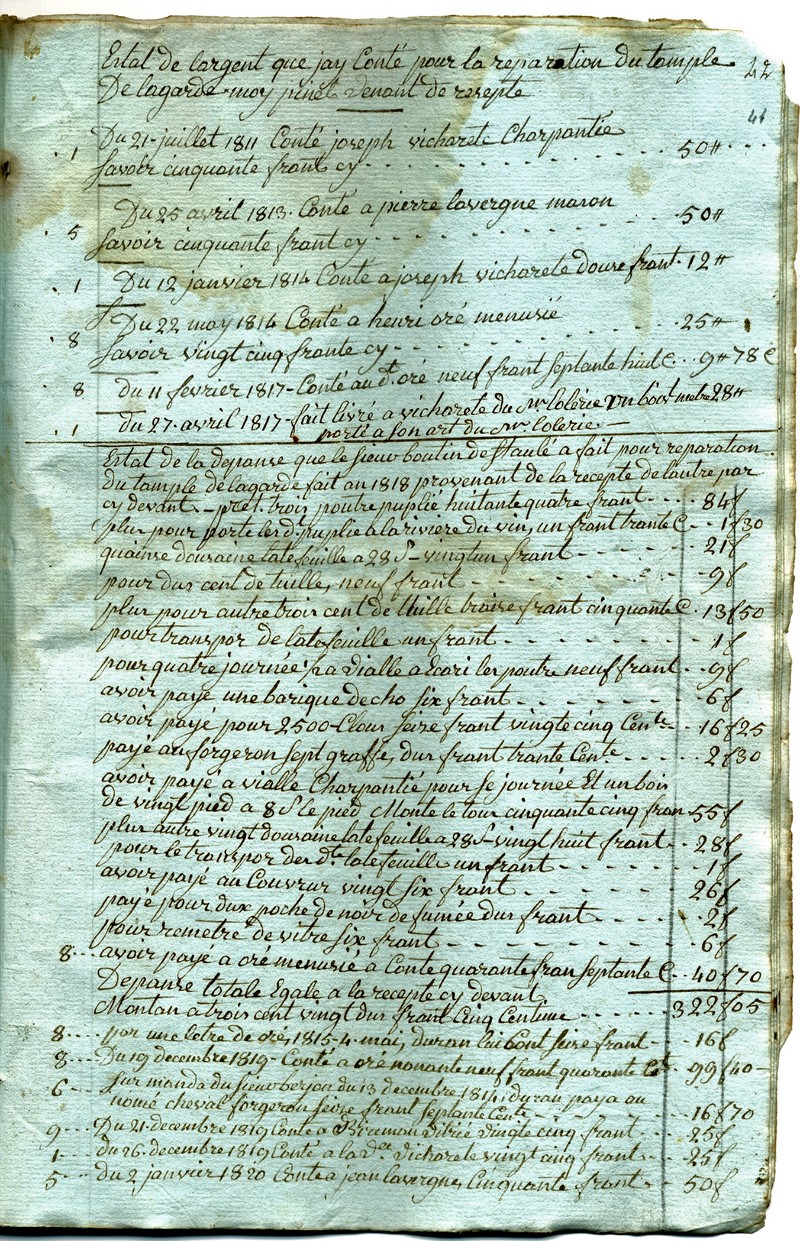 Estat de largent que jay Conté pour la reparation du tample 22
De lagarde moy pinet venant de resepte
41
1 Du 21 juillet 1811 Conté joseph vicharete Charpantiée
savoir cinquante frant cy - - - 50 ₶
5 Du 25 avril 1813. Conté a pierre lavergne mason
savoir cinquante frant cy - - - 50 ₶
1 Du 12 janvier 1814 Conté a joseph vicharete douse frant. 12 ₶
8 Du 22 may 1814 Conté a henri oré menusié
savoir vingt cinq frante cy - - - 25 ₶
8 du 11 fevrier 1817 - Conté au dt. oré neuf frant septante huit C. 9 ₶ 78 C
1 du 27 avril 1817 - fait livré a vicharete du Sr. lolerie un bois metre 28 ₶
porté a son art du Sr. lolerie
Estat de la depanse que le sieur boutin de staulé a fait pour reparation
du tample de lagarde fait an 1818 provenant de la recepte de lautre par
cy devant - pret. trois poutre puplié huitante quatre frant - - - 84 f
plus pour porte les dt. puplie a la riviere du vin, un frant trante C - 1 f 30
quainse dousaine latefeuille a 28 S - vingtun frant - - - 21 f
pour dus cent de tuille, neuf frant - - - 9 f
plus pour autre trois cent de thille traise frant cinquante C. 13 f 50
pour transpor de latefeuille un frant - - - 1 f
pour quatre journée 1/2 a vialle a Ecari les poutre neuf frant - 9 f
avoir payé une barique de cho six frant - - - 6 f
avoir payé pour 2500 - Clous seise frant vingte cinq Cente - 16 f 25
payé au forgeron sept graffe, dus frant trante Cente - - - 2 f 30
avoir payé a vialle Charpantié pour se journée Et un bois
de vingt pied a 8 S le pied Monte le tout cinquante cinq fran - 55 f
plus autre vingt dousaine latefeuille a 28 S - vingt huit frant - 28 f
pour le transpor des dt. latefeuille un frant - - - 1 f
avoir payé au Couvreur vingt six frant - - - 26 f
payé pour dux poche de noir de fumée dus frant - - - 2 f
pour remetre de vitre six frant - - - 6 f
8 - - avoir payé a oré menusié a Conte quarante fran septante C - 40 f 70
Depanse totale Egale a la recepte cy devant
Montan a trois cent vingt dus frant Cinq Centime - - - 322 f 05
8 - - - par une letre de oré, 1815 - 4 - mai, duran lui Cont seise frant - 16 f
8 - - - Du 19 decembre 1819 - Conté a oré nonante neuf frant quarante Cte - 99 f 40
6 - - - sur manda du sieur berjon du 13 decembre 1814, duran paya au
nomé cheval forgeron seise frant septante Cente - - - 16 f 70
9 - - - Du 21 decembre 1819 Conté a vitrié vingte cinq frant - 25 f
1 - - - du 26 decembre 1819 Conté a la Vicharete vingt cinq frant - 25 f
5 - - - du 2 janvier 1820 Conté a jean lavergne, Cinquante frant - 50 f